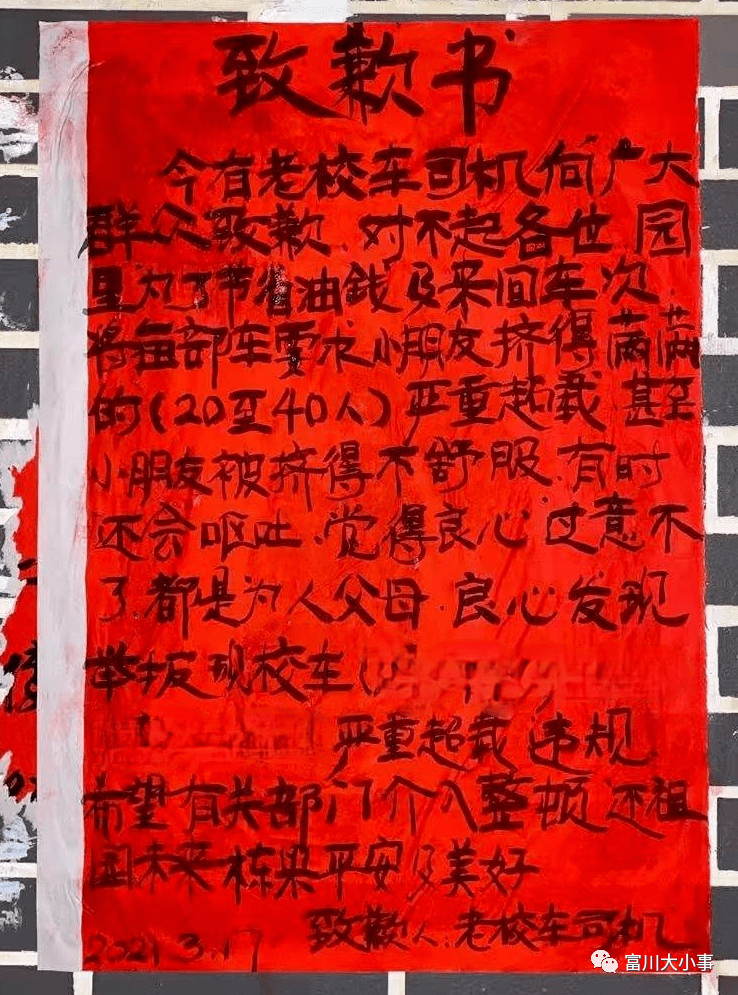 致歉书
今有老校车司机向广大
群众致歉.对不起各位.园
里为了节省油钱及来回车次
将每部车要求小朋友挤得满满
的(20至40人)严重超载.甚至
小朋友被挤得不舒服.有时
还会呕吐.觉得良心过意不
了.都是为人父母.良心发现
举报现校车(
严重超载违规.
希望有关部门介入整顿.还祖
国未来栋梁平安及美好
致歉人:老校车司机
2021.3.17
富川大小事